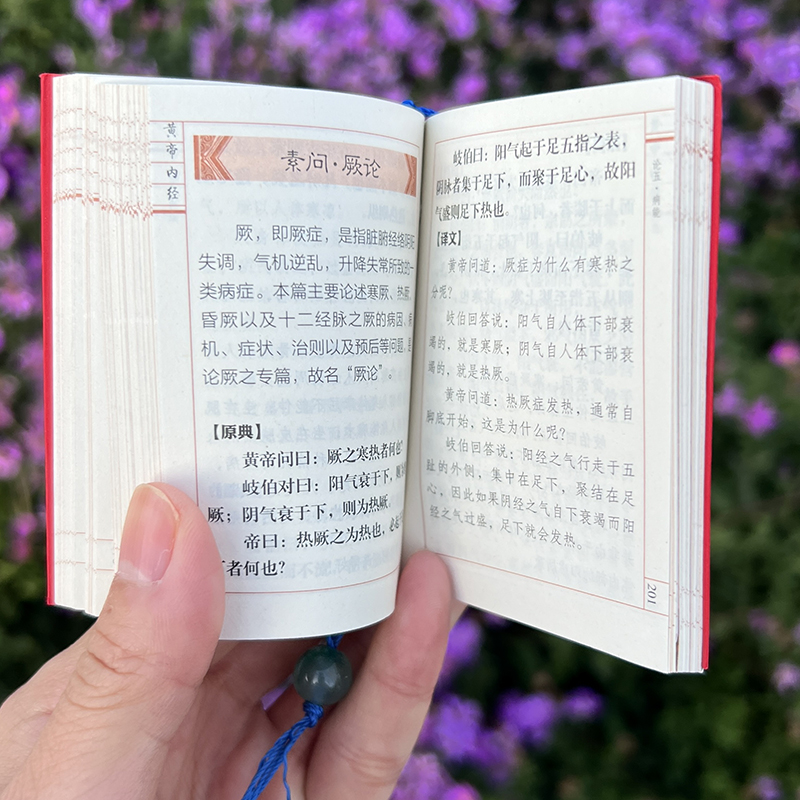 黄帝内经
素问·厥论
厥，即厥症，是指脏腑经络阴阳
失调，气机逆乱，升降失常所致的一
类病症。本篇主要论述寒厥、热厥、
昏厥以及十二经脉之厥的病因、病
机、症状、治则以及预后等问题，是
论厥之专篇，故名“厥论”。
【原典】
黄帝问曰：厥之寒热者何也？
岐伯对曰：阳气衰于下，则为
厥；阴气衰于下，则为热厥。
帝曰：热厥之为热也，必起
者何也？
岐伯曰：阳气起于足五指之表，
阴脉者集于足下，而聚于足心，故阳
气盛则足下热也。
【译文】
黄帝问道：厥症为什么有寒热之
分呢？
岐伯回答说：阳气自人体下部衰
竭的，就是寒厥；阴气自人体下部衰
竭的，就是热厥。
黄帝问道：热厥症发热，通常自
脚底开始，这是为什么呢？
岐伯回答说：阳经之气行走于五
趾的外侧，集中在足下，聚结在足
心，因此如果阴经之气自下衰竭而阳
经之气过盛，足下就会发热。
201